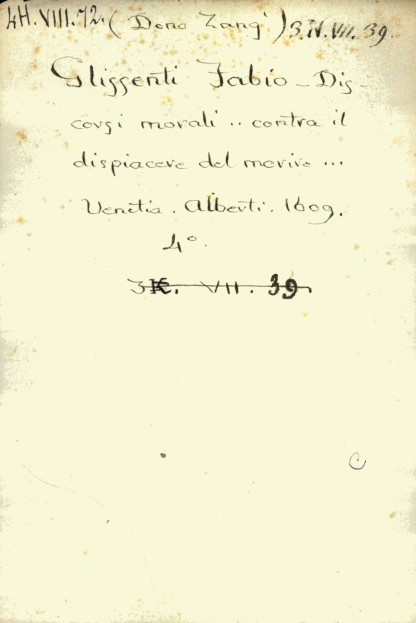 4H.VIII.72. (Dono Zangi) 3.N.VII.39
Glissenti Fabio - Dis-
corsi morali .. contra il
dispiacere del morire ...
Venetia. Alberti. 1609.
4°.
3K. VII. 39
C